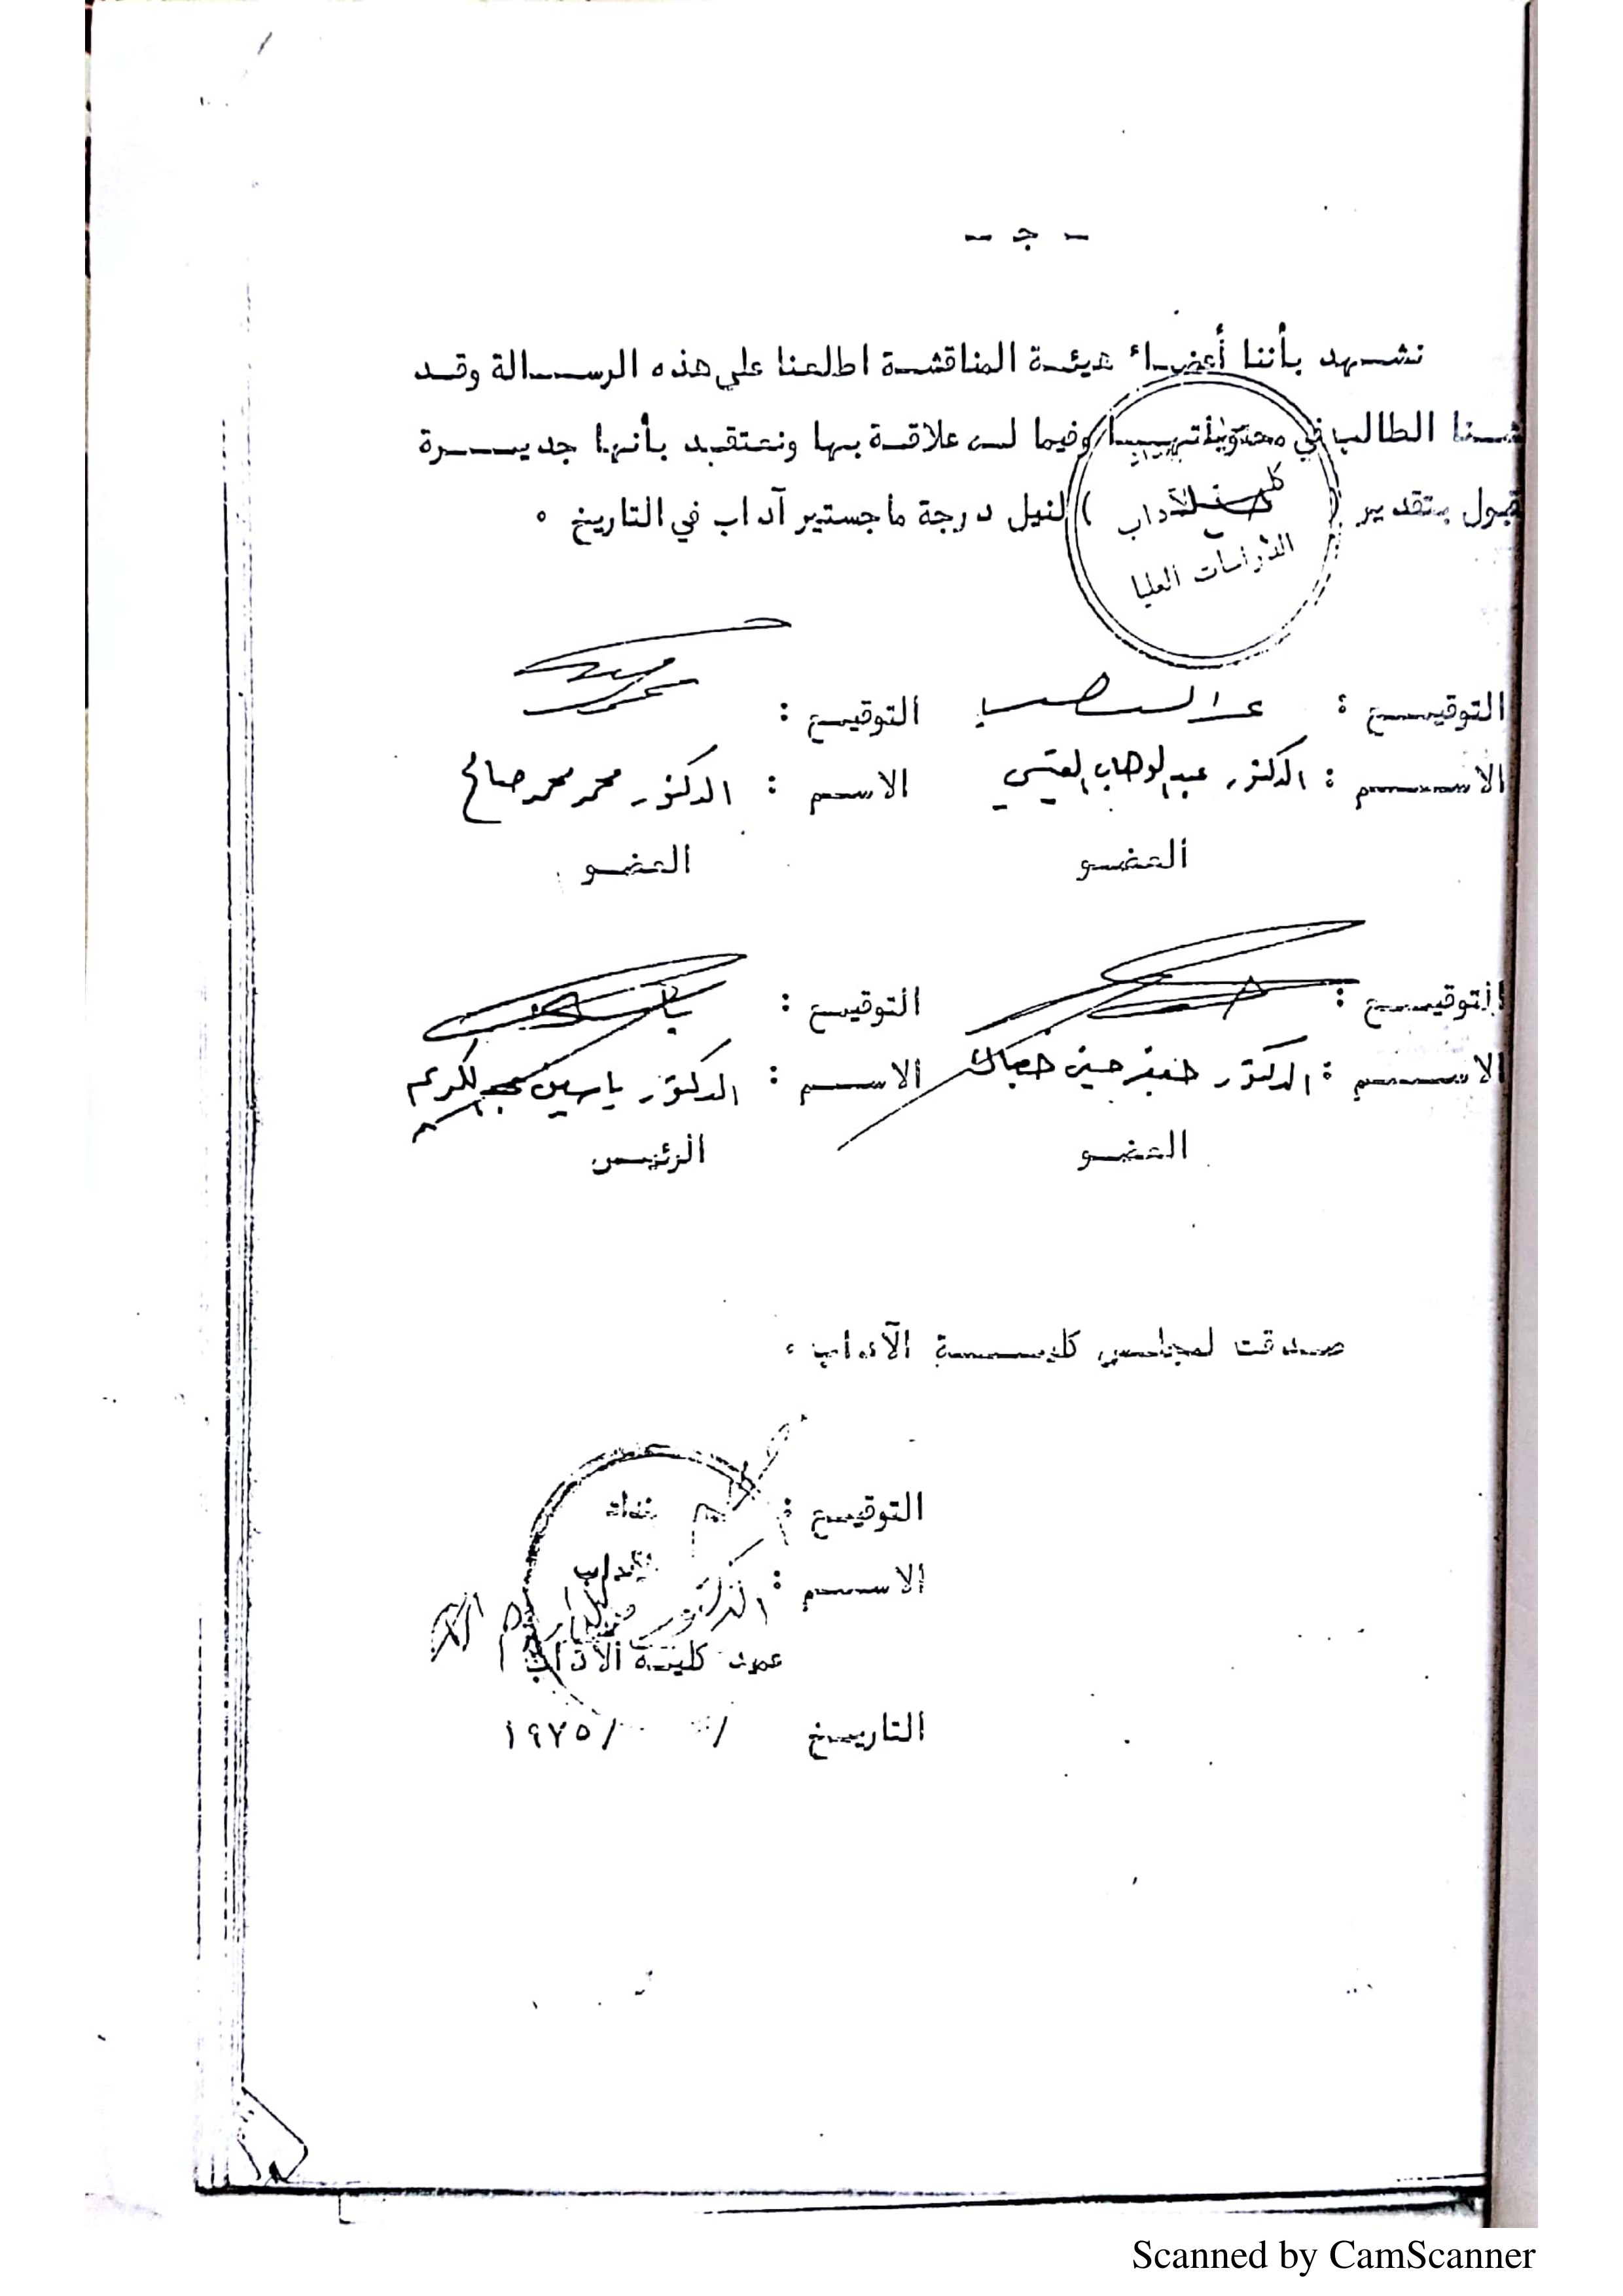 - ج -
نشهد بأننا أعضاء هيئة المناقشة اطلعنا على هذه الرسالة وقد
الطالب في محتوياتها وفيما له علاقة بها ونعتقد بأنها جديرة
قبول بتقدير ( ) لنيل درجة ماجستير آداب في التاريخ .
كلية الآداب
الدراسات العليا
التوقيع : التوقيع :
الاسم : الدكتور عبد الوهاب القيسي الاسم : الدكتور محمد محمد صالح
العضو العضو
التوقيع : التوقيع :
الاسم : الدكتور جعفر حسين خصباك الاسم : الدكتور ياسين عبد الكريم
العضو الرئيس
صدقت لمجلس كلية الآداب .
التوقيع :
الاسم : الدكتور
عميد كلية الآداب
التاريخ / / ١٩٧٥
Scanned by CamScanner